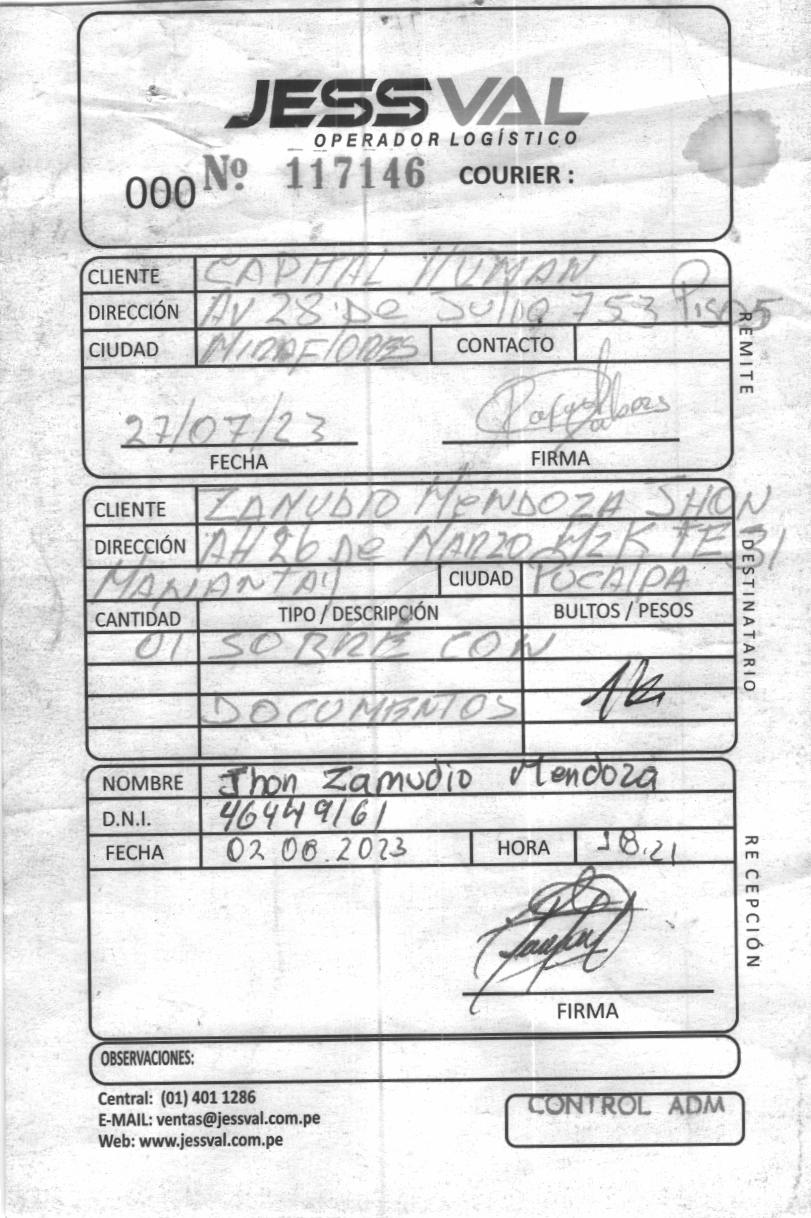 JESSVAL
OPERADOR LOGÍSTICO
000 Nº 117146 COURIER :
CLIENTE CAPITAL HUMAN
DIRECCIÓN AV 28 De Julio 753 Piso 5
CIUDAD MIRAFLORES CONTACTO
REMITE
27/07/23
FECHA FIRMA
CLIENTE ZAMUDIO MENDOZA JHON
DIRECCIÓN AH 26 De MARZO MZ K
MANANTAY CIUDAD PUCALPA
DESTINATARIO
CANTIDAD TIPO / DESCRIPCIÓN BULTOS / PESOS
01 SOBRE CON
DOCUMENTOS
NOMBRE Jhon Zamudio Mendoza
D.N.I. 46449161
FECHA 02 08.2023 HORA 18.21
RE CEPCIÓN
FIRMA
OBSERVACIONES:
Central: (01) 401 1286
E-MAIL: ventas@jessval.com.pe
Web: www.jessval.com.pe
CONTROL ADM